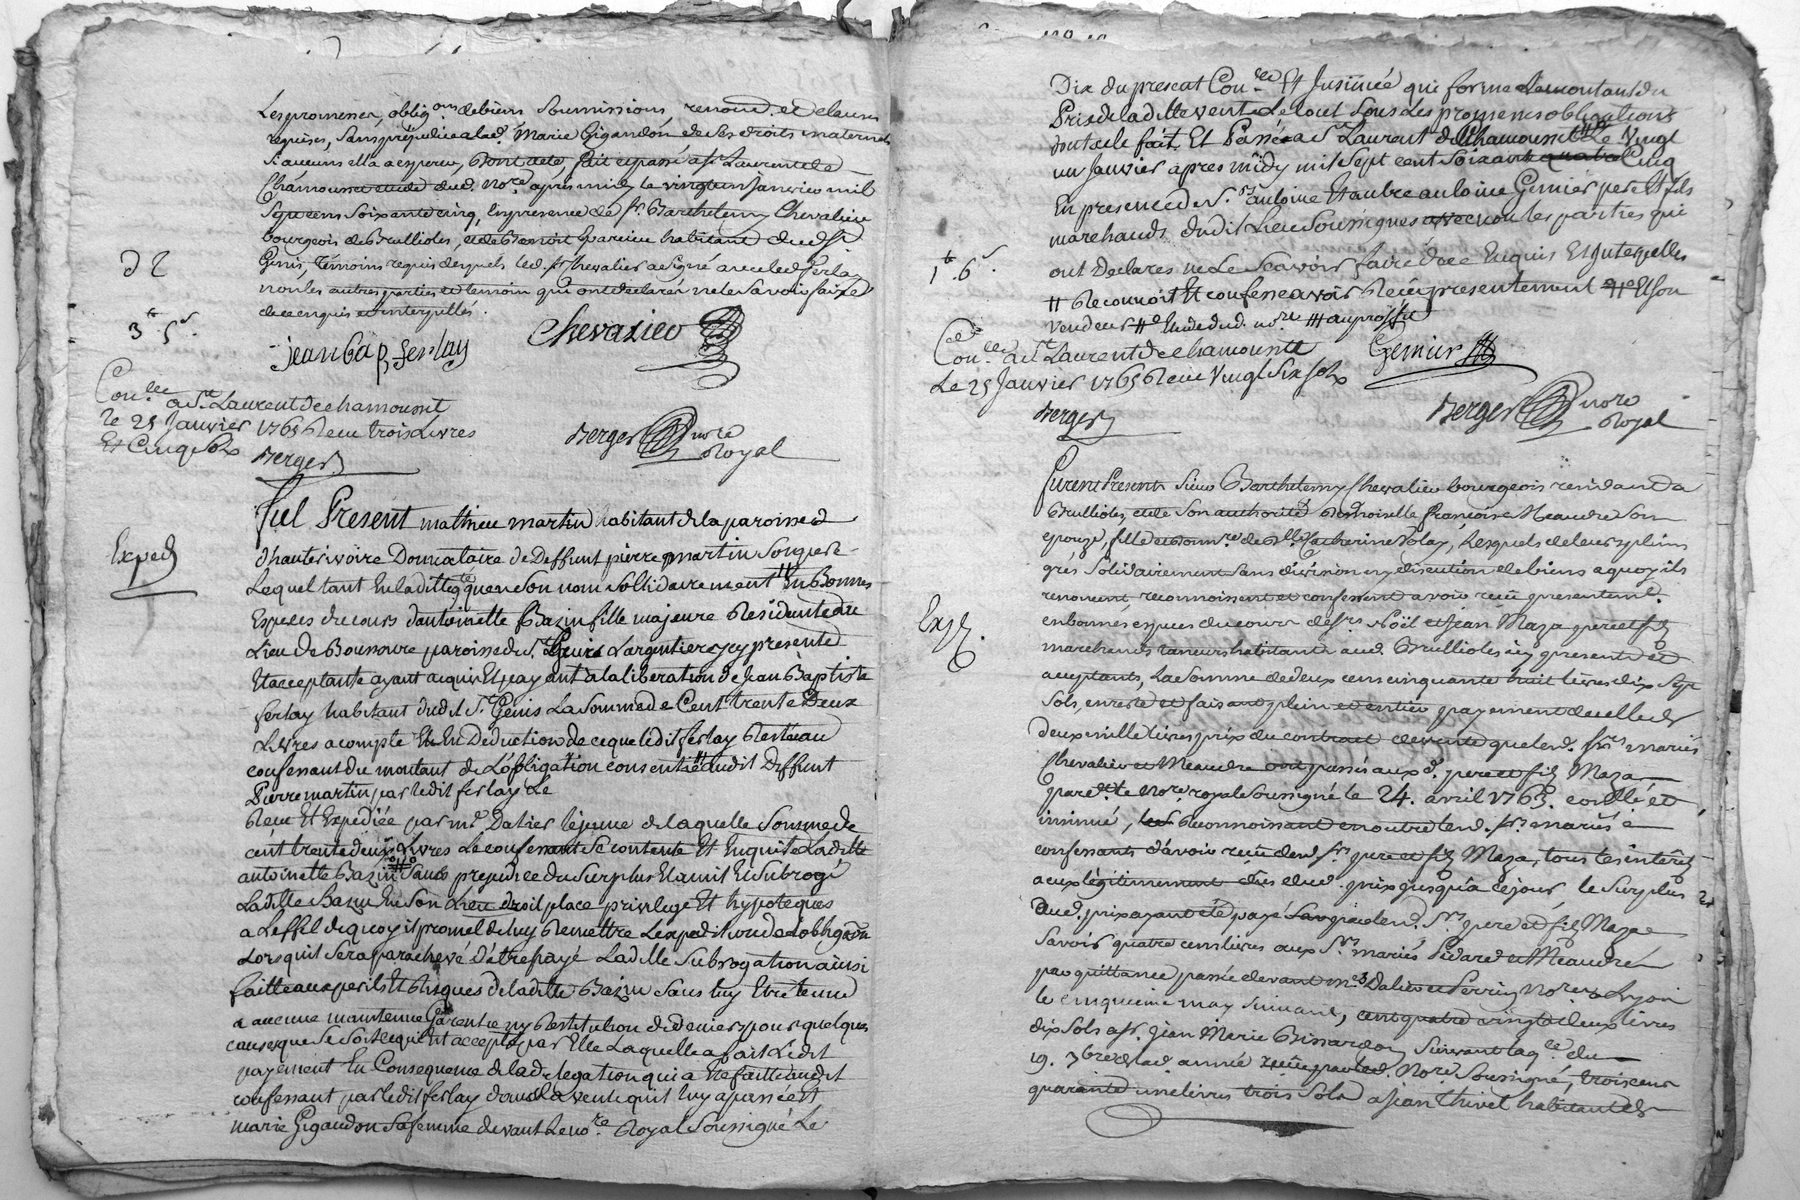 Les promesses, oblig.ons de biens soumissions, renond. et clauses
requises, sans prejudice a lad. Marie Gigandon de ses droits maternels
si aucuns elle a a esperer, Dont acte fait et passé a st Laurent de
Chamousset etude dud. no.re après midy le vingt un Janvier mil
Sept cens Soixante cinq, En presence de sr. Barthelemy Chevalier
bourgeois de Brullioles, et de Benoit habitant dud. st
Genis, témoins requis desquels led. sr Chevalier a signé avec led. ferlay
non les autres parties et temoin qui ont declarés ne le Savoir faire
de ce enquis et interpellés.
d 2
3tt 5s.
jean bap ferlay
Chevalier
Con.lle a st. Laurent de chamousset
le 25 Janvier 1765 Recu trois Livres
Et Cinq sols
Berger
Berger nore
Royal
Exped
Fut Present mathieu martin habitant de la paroisse d
d'hauterivoire Donnataire de Deffunt pierre martin Son pere
Lequel tant En ladite qté. qu'en Son nom sollidairement En Bonnes
Especes du cours d'antoinette Bazin fille majeure Residente au
Lieu de Boussoure paroisse de st. Genis Largentiere icy presente
Et acceptante ayant acquis Et payant a la liberation de Jean Baptiste
ferlay habitant dudit st. Genis La Somme de Cent trente Deux
Livres a compte Et En Deduction de ce que ledit ferlay Reste au
confessant du montant de L'obligation consentie audit Deffunt
Pierre martin par ledit ferlay Le
Recue Et Expediée par me. Dalier lejeune de laquelle Somme de
cent trente deux Livres Le confessant Se contente Et En quitte Ladite
antoinette Bazin Sans prejudice du Surplus Et a mis Et Subrogé
Ladite Bazin En Son Lieu droit place privilege Et hypoteques
a L'effet de quoy il promet de luy Remettre L'expedition de L'obligaon.
Lorsquil Sera parachevé d'etre payé Ladite Subrogation ainsi
faitte aux perils Et Risques de ladite Bazin Sans luy Etre tenu
a aucune maintenue Garentie ny Restitution de deniers pour quelque
cause que Se soit ce qui Est accepté par Elle Laquelle a fait Ledit
payement En Consequence de la delegation qui a Eté faitte audit
confessant par ledit ferlay dans La vente quil luy a passée et
marie Gigandon Sa femme devant Le no.re Royal Soussigné Le
Dix du present Con.lle Et Insinuée qui forme Le montant du
Prix de la ditte vente Le tout Sous Les promesses obligations
dont acte fait Et Passé a st Laurent de Chamousset Le Vingt
un Janvier apres midy mil Sept cent Soixante Cinq
En presence de srs antoine Et autre antoine Genier pere Et fils
marchands dudit Lieu Soussignés non les parties qui
1tt 6s.
ont Declarés ne Le Scavoir faire de ce Enquis Et Interpellés
# Reconnoit Et confesse avoir Recu presentement
vendeur Etude dud. no.re
Con.lle a st Laurent de chamoussett
Le 25 Janvier 1765 Recu Vingt Six sols
Genier
Berger
Berger nore
Royal
Exp.
Furent Presents Sieur Barthelemy Chevalier bourgeois residant a
Brullioles, et de Son authorité Demoiselle françoise Meaudre Son
epouse, fille de dlle Catherine Volay, Lesquels de leurs pleins
grés Solidairement Sans division ny discution de biens a quoy ils
renoncent, reconnoissent et confessent avoir recu presentement
en bonnes especes du cours de srs Noël et jean Maza pere et fils
marchands taneurs habitants aud. Brullioles icy presents et
acceptants, La Somme de deux cens cinquante huit livres dix Sept
Sols, en reste et faisant plein et entier payement de celle de
deux mille livres prix du contrat de vente que lesd. srs mariés
Chevalier et Meaudre ont passés auxd. pere et fils Maza
par devt. le no.re royal Soussigné le 24. avril 1763. conllé et
insinué, Reconnoissant en outre lesd. srs mariés
confessants d'avoir recu desd. srs pere et fils Maza, tous les intérêts
a eux légitimement dûs dud. prix jusqu'a ce jour, le Surplus
dud. prix ayant été payé lesd. srs pere et fils Maza
Savoir quatre cens livres aux srs mariés et Meaudre
par quittance passée devant mes Dalier et Perrin No.res a Lyon
le cinquieme may suivant, cent quatre vingt deux livres
dix Sols a sr. jean Marie Bissardon Suivant la q.ce du
19. 7bre de lad. année recue par led. No.re Soussigné, trois cens
quarante une livres trois Sols a jean Thivel habitant de